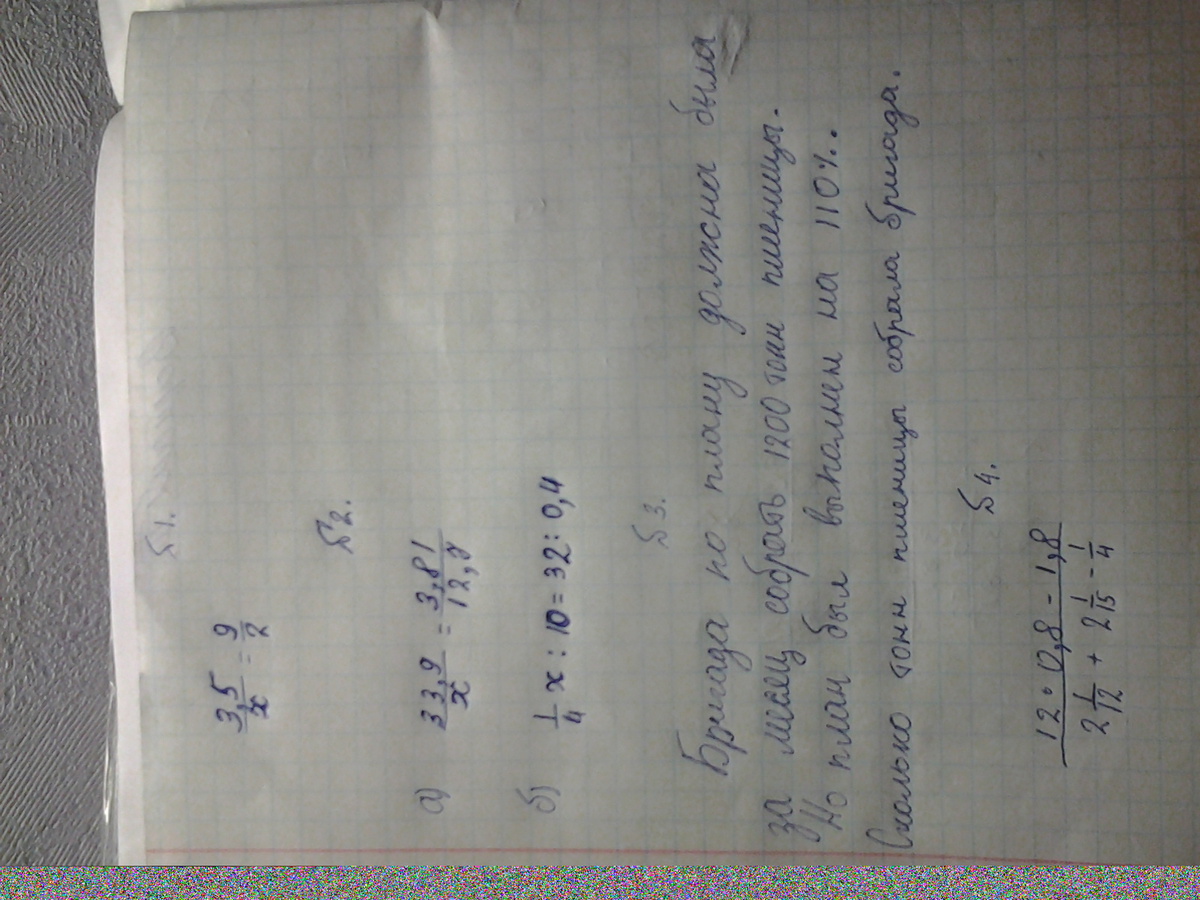 №1.
3,5/x = 9/2
№2.
а) 33,9/x = 3,81/12,7
б) 1/4 x : 10 = 32 : 0,4
№3.
Бригада по плану должна была
за месяц собрать 1200 тонн пшеницы.
Но план был выполнен на 110%.
Сколько тонн пшеницы собрала бригада.
№4.
12 · 0,8 - 1,8
2 1/12 + 2 1/15 - 1/4